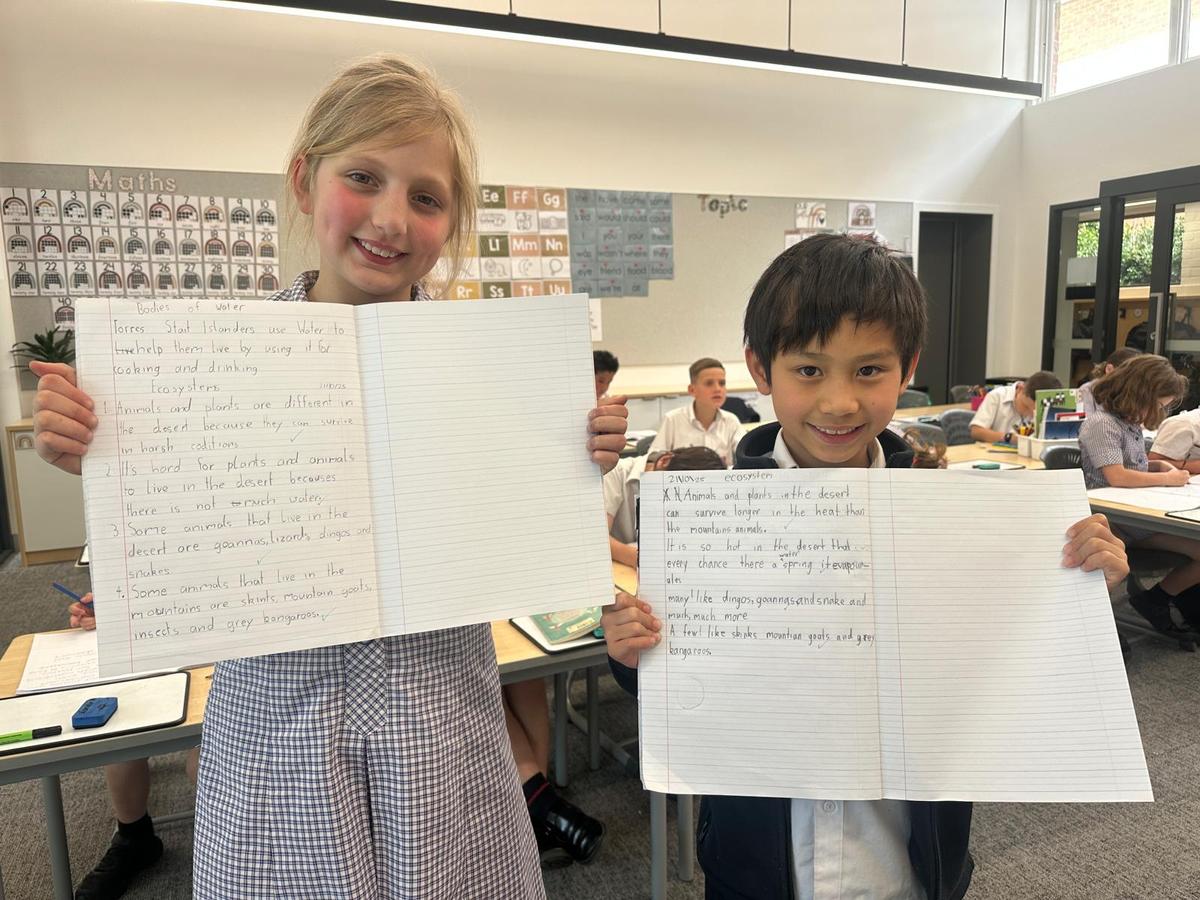 Maths
1 2 3 4 5 6 7 8 9 10
11 12 13 14 15 16 17 18 19 20
21 22 23 24 25 26 27 28 29 30
40
Ee Ff Gg
Ll Mm Nn
Rr Ss Tt Uu
the have come some
said would should could
you your they
was wasn't where
eye friend food blood
Topic
Bodies of water
Torres Stait Islanders use Water to
live help them live by using it for
cooking and drinking
Ecosystems
1. Animals and plants are different in
the desert because they can survive
in harsh coditions
2. It's hard for plants and animals
to live in the desert becauses
there is not much water,
3. Some animals that live in the
desert are goannas, lizards, dingos and
snakes
4. Some animals that live in the
mountains are skinks, mountain goats,
insects and grey kangaroos.
21Nov25 ecosystem
Animals and plants in the desert
can survive longer in the heat than
the mountains animals.
It is so hot in the desert that
every chance there a water spring it evapour-
ates
many! like dingos, goannas and snake and
much, much more
A few! like skinks mountian goats and grey
kangaroos.